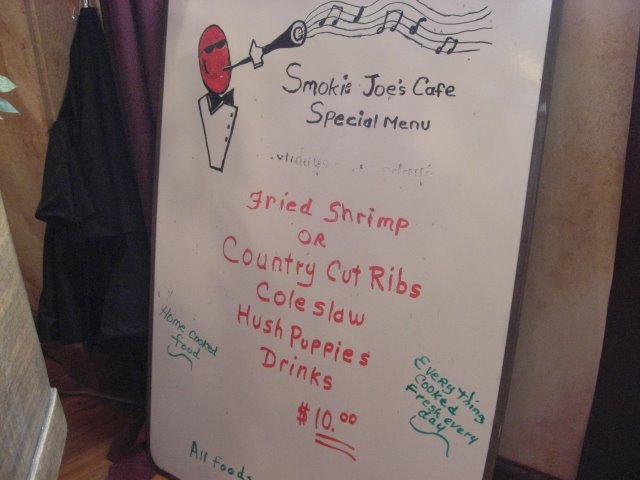 Smokie Joe's Cafe
Special Menu
Fried Shrimp
OR
Country Cut Ribs
Coleslaw
Hush Puppies
Drinks
$10.00
Home Cooked
food
EveRyThing
Cooked
Fresh every
day
All foods